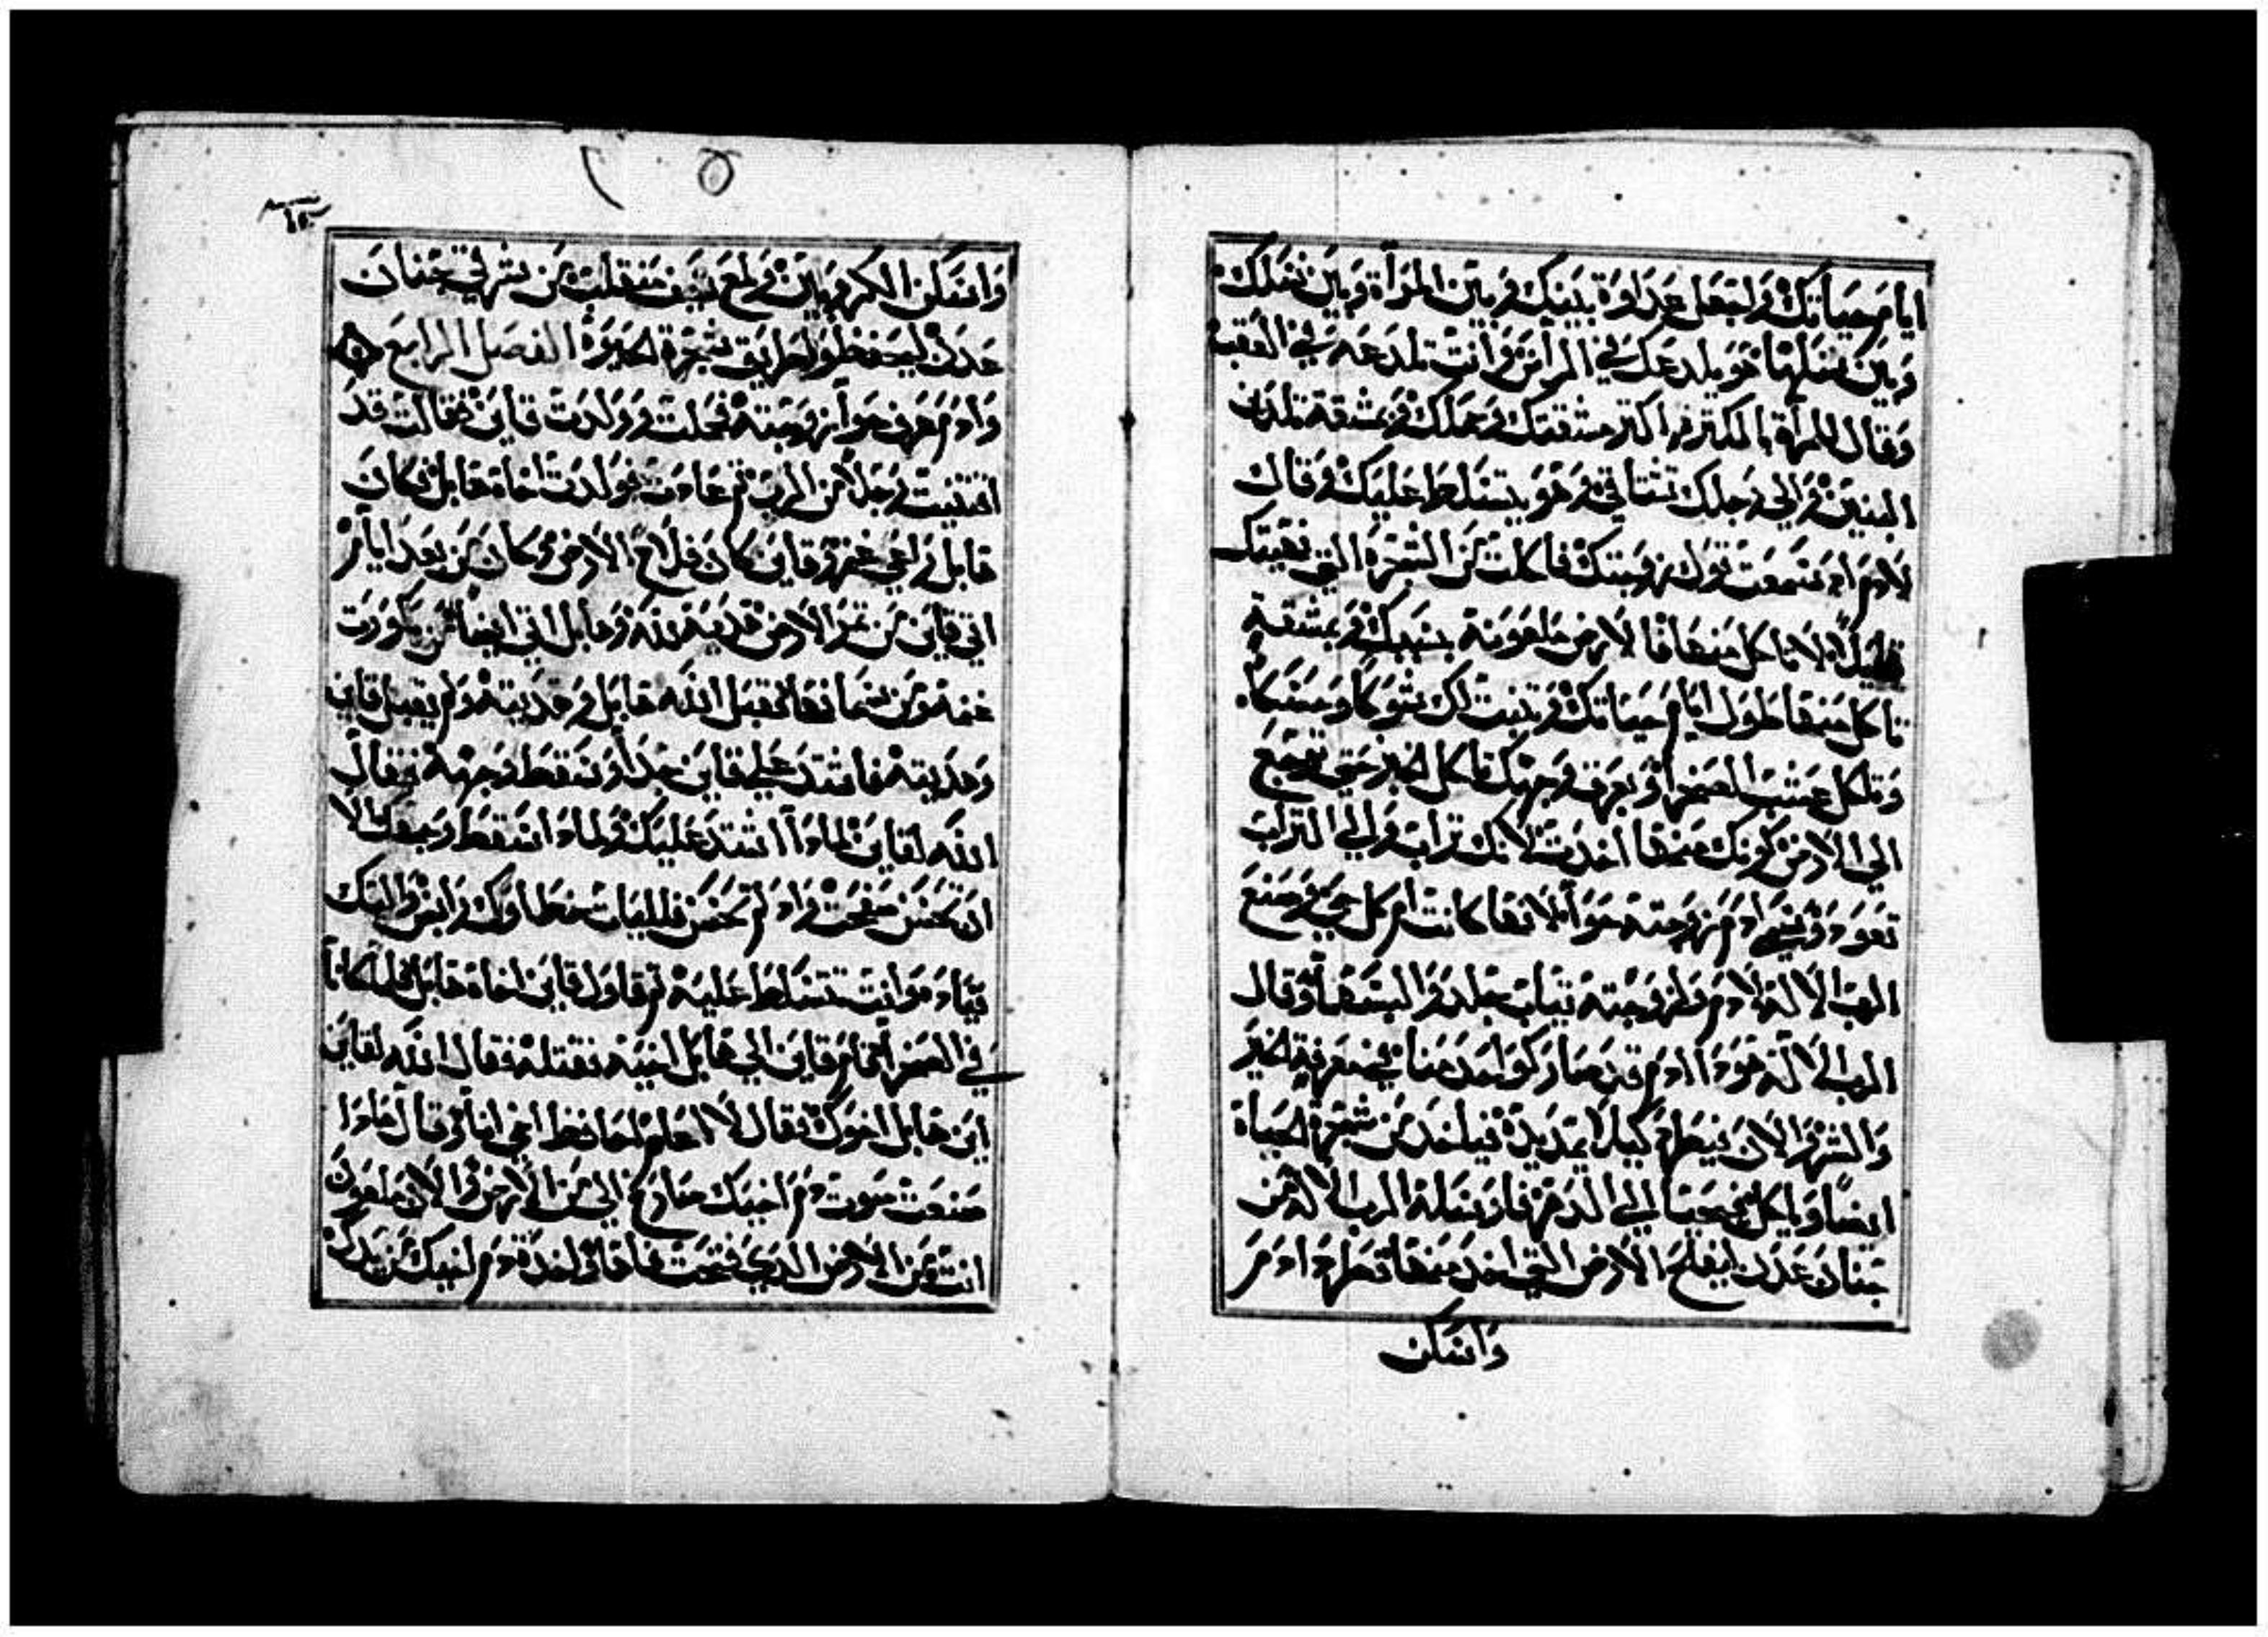 ايام حياتك واجعل عداوة بينك وبين المرأة وبين نسلك
وبين نسلها هو يلدعك في الرأس وانت تلدعه في العقب
وقال للمرأة بالكتر اكتر مشقتك وحملك بمشقة تلدين
البنين والي رجلك تشتاقي وهو يتسلط عليك وقال
لادم اد سمعت قول زوجتك فاكلت من الشجرة التي نهيتك
قايلًا لا تاكل منها فالارض ملعونة بسببك بمشقة
تاكل منها طول ايام حياتك وتنبت لك شوكا وحسكا
وتاكل عشب الصحرا وبعرق وجهك تاكل الخبز حتى ترجع
الي الارض كونك منها اخدت لانك تراب والي التراب
تعود وسمي ادم زوجته حوا لانها كانت ام كل حي وصنع
الرب الاله لادم ولزوجته تياب جلد والبسهما وقال
الرب الاله هودا ادم قد صار كواحد منا في معرفة الخير
والشر والان فيطرد كيلا يمد يده فياخد من شجرة الحياة
ايضا وياكل فيحيا الي الدهر فارسله الرب الاله من
جنان عدن ليفلح الارض التي اخد منها وطرد ادم
واسكن
١٥
واسكن الكروبين ولمع سيف متقلب من شرقي جنان
عدن ليحفظوا طريق شجرة الحيوة الفصل الرابع
وادم عرف حوا زوجته فحبلت وولدت قاين فقالت قد
اقتنيت رجلا من الرب ثم عادت فولدت اخاه هابل فكان
هابل راعي غنم وقاين كان فلاح الارض وكان من بعد ايام
اتي قاين من تمر الارض هدية لله وهابل اتي ايضا من بكورت
غنمه ومن سمانها فقبل الله هابل وهديته ولم يقبل قاين
وهديته فاشتد علي قاين جدا وسقط وجهه فقال
الله لقاين لمادا اشتد عليك ولمادا سقط وجهك الا
ان تحسن صفحت واد لم تحسن فللباب خطاوك رابض واليك
قياده وانت تتسلط عليه ثم قاول قاين اخاه هابل فلما كانا
في الصحرا قام قاين الي هابل اخيه فقتله فقال الله لقاين
اين هابل اخوك فقال لا اعلم احافظ اخي انا وقال مادا
صنعت صوت دم اخيك صارخ الي من الارض والان ملعون
انت من الارض الدي فتحت فاها واخدة دم اخيك من يدك